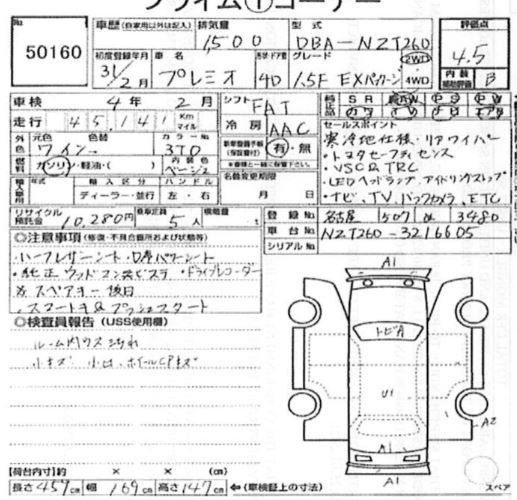 プライム①コーナー
No. 50160
車歴 (自家用以外は記入) 排気量 1,500 型式 DBA-NZT260 評価点 4.5
初度登録年月 31/2月 車名 プレミオ 形状・ドア数 4D グレード 1.5F EXパッケージ 2WD 4WD 内装補助評価 B
車検 4年2月 シフト FAT
走行 45,141 Km マイル 冷房 AAC
外色 元色 ワイン 色替 カラーNo. 3T0 有・無
燃料 ガソリン・軽油・( ) 内装色 ベージュ
年式 輸入区分 ハンドル 名義変更期限
ディーラー・並行 左 右 月 日
リサイクル預託金 10,280円 乗車定員 5人 積載量
SR AW PS PW
セールスポイント
寒冷地仕様・リアワイパー
・トヨタセーフティセンス
・VSC&TRC
・LEDヘッドランプ、アイドリングストップ
・ナビ、TV、バックカメラ、ETC
登録No. 名古屋 507 ぬ 3480
車台No. NZT260-3216605
シリアルNo.
◎注意事項 (修復・不具合箇所および状態等)
・ハーフレザーシート・D席パワーシート
・純正ウッドコンビステ・ドライブレコーダー
※スペアキー後日
・スマートキー&プッシュスタート
◎検査員報告 (USS使用欄)
ルーム内ウス汚れ
小キズ 小凹 ホイールCPキズ
A1
トビA
U1
A2
A1
A1
【荷台内寸】約 × × (cm)
長さ 459cm 幅 169cm 高さ 147cm ←(車検証上の寸法)
スペア